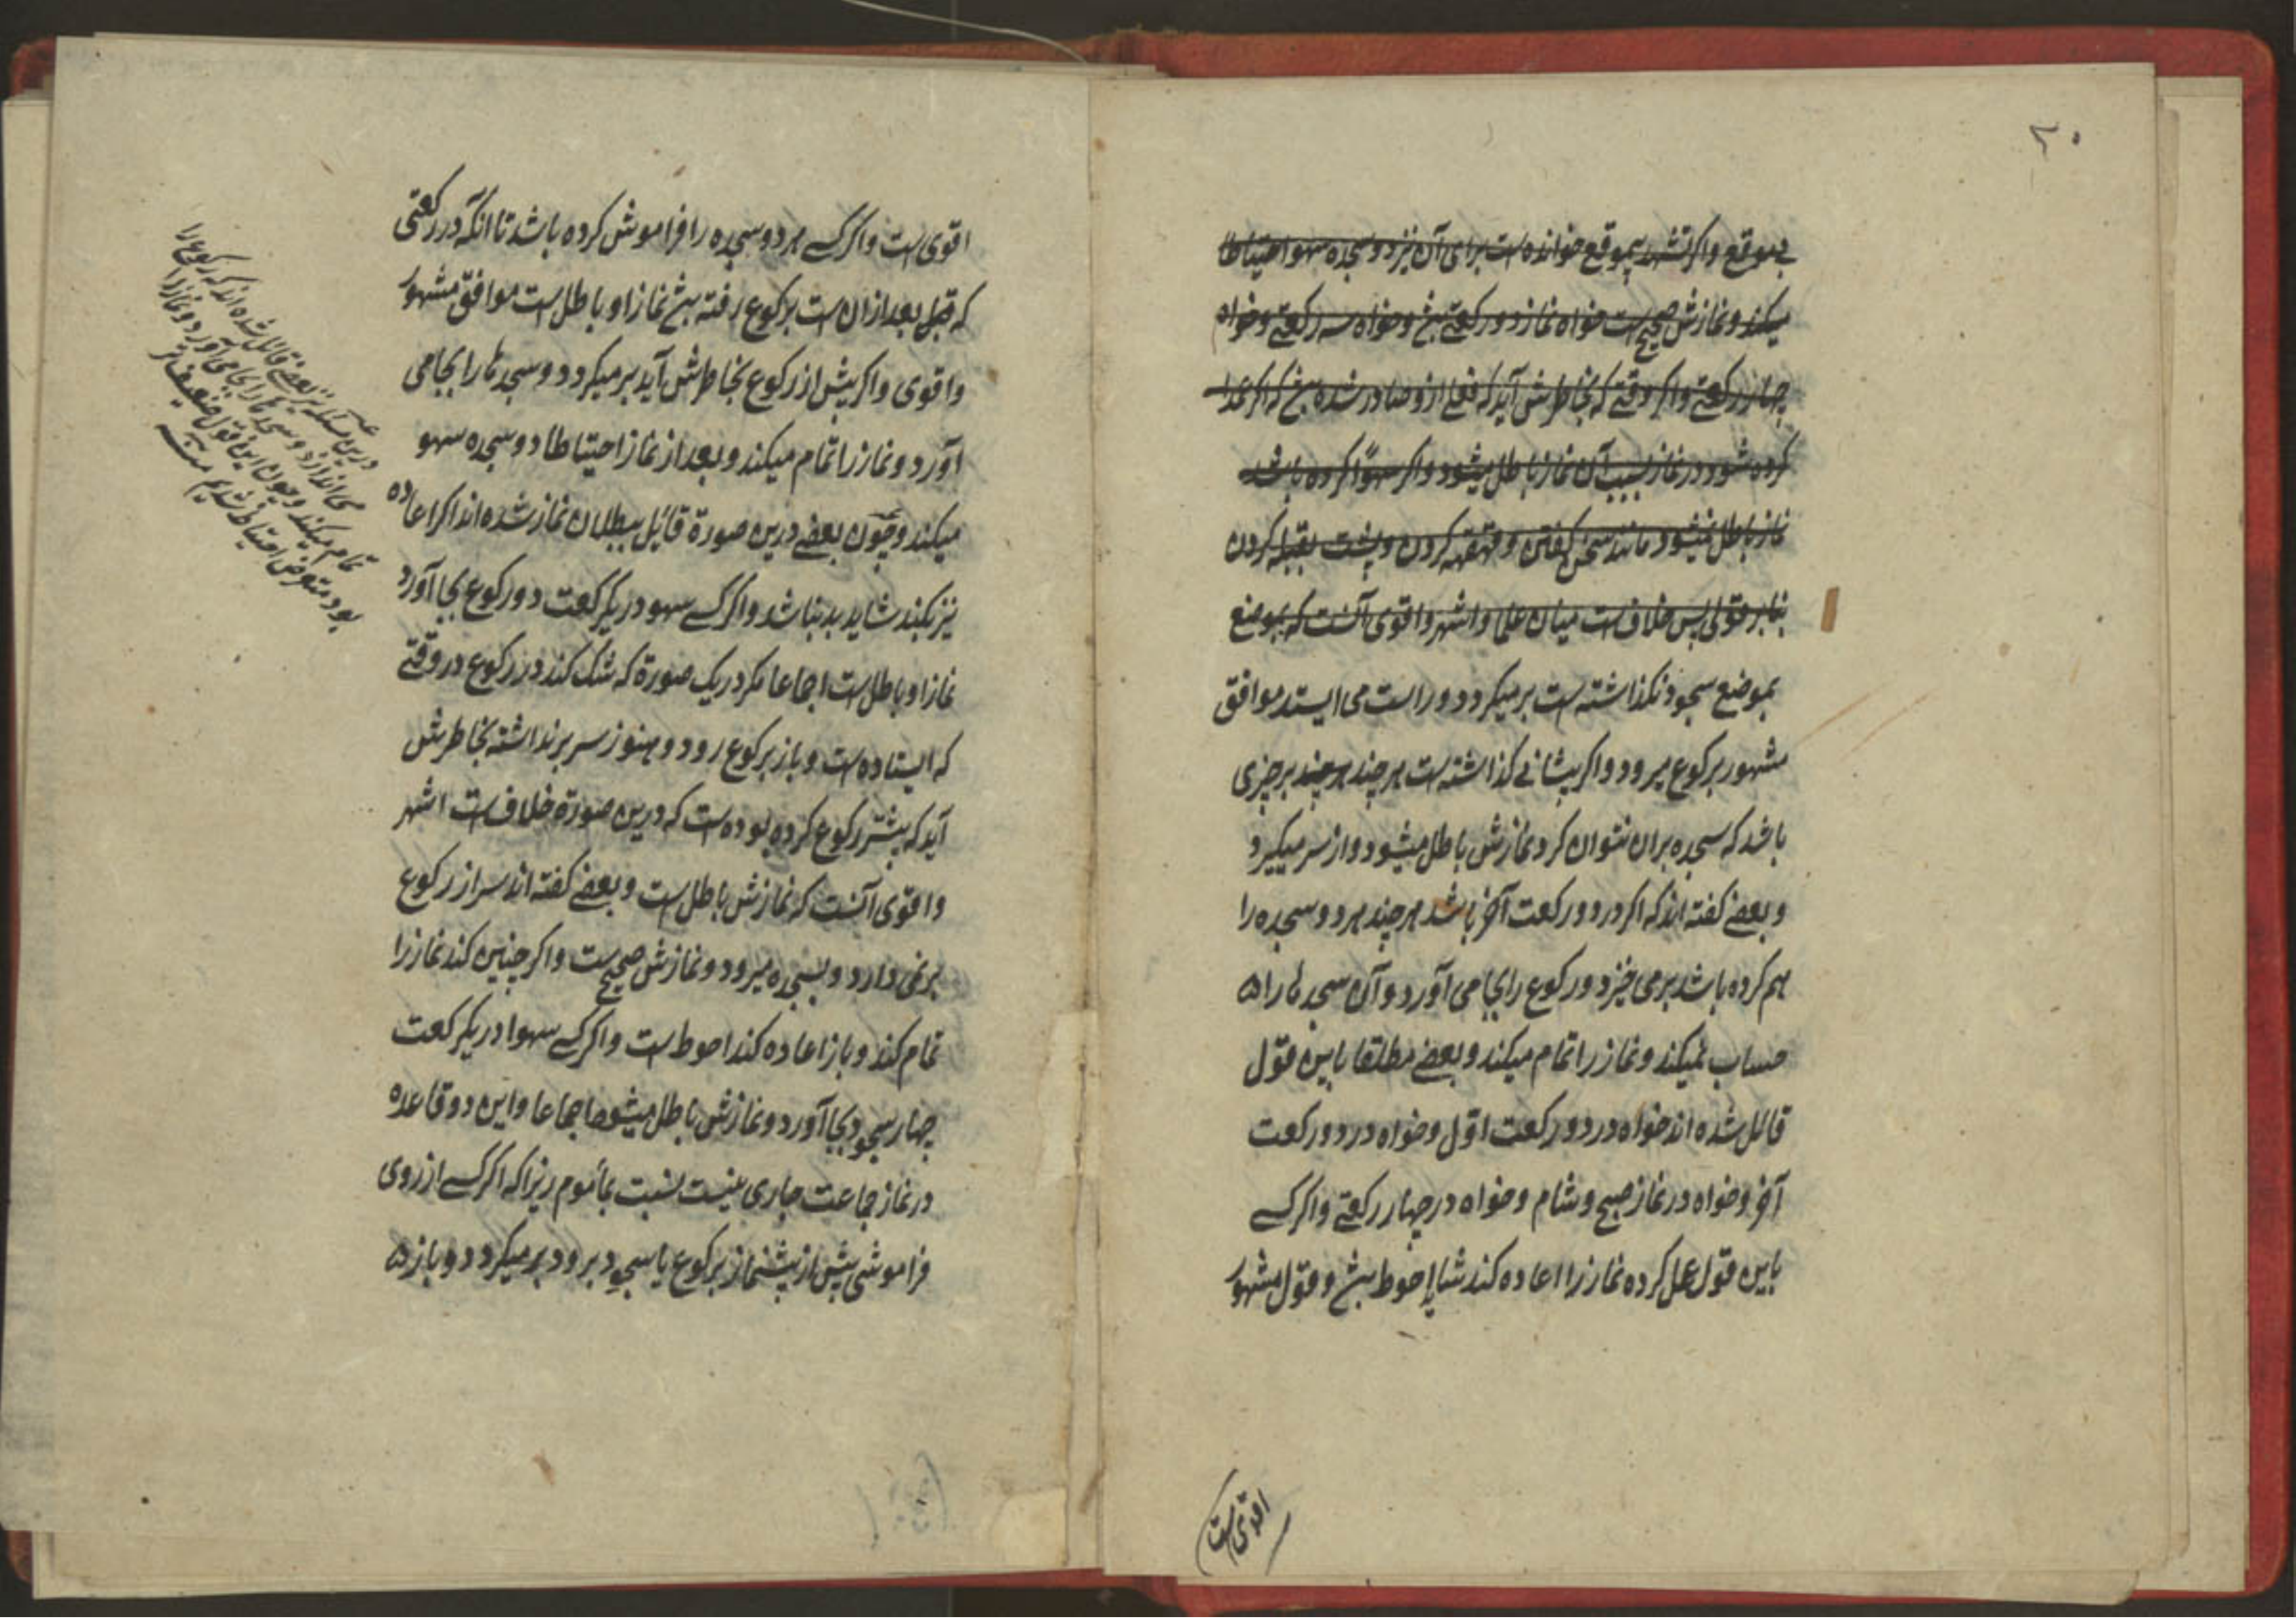 ۲۰
بی‌موقع و اگر تشهد بیموقع خوانده است برای آن نیز دو سجده سهو احتیاطا
میکند و نمازش صحیح است خواه نماز دو رکعتی بش و خواه سه رکعتی و خواه
چهار رکعتی و اگر وقتی که بخاطرش آید که فعلی ازو صادر شده بش که اگر عمدا
کرده شود در نماز بسبب آن نماز باطل میشود و اگر سهوًا کرده باشد
نماز باطل نمیشود مانند سخن گفتن و قهقهه کردن و پشت بقبله کردن
بنابر قولی پس خلاف است میان علما و اشهر و اقوی آنست که بموضع
بموضع سجود نگذاشته است برمیگردد و راست می ایستد موافق
مشهور برکوع میرود و اگر پیشانی گذاشته است هرچند هرچند برچیزی
باشد که سجده بران نتوان کرد نمازش باطل میشود و از سر میگیرد
و بعضی گفته اند که اگر در دو رکعت آخر باشد هرچند هر دو سجده را
بهم کرده باشد برمی خیزد و رکوع را بجا می آورد و آن سجدها را
حساب نمیکند و نماز را تمام میکند و بعضی مطلقا باین قول
قائل شده اند خواه در دو رکعت اوّل و خواه در دو رکعت
آخر و خواه در نماز صبح و شام و خواه در چهار رکعتی و اگر کسی
باین قول عمل کرده نماز را اعاده کند شاید احوط بش و قول مشهور
اقوی است
اقوی است و اگر کسی هر دو سجده را فراموش کرده باشد تا انکه در رکعتی
که قبل بعد از ان است برکوع رفته بش نماز او باطل است موافق مشهور
و اقوی و اگر پیش از رکوع بخاطرش آید برمیگردد و سجدها را بجا می
آورد و نماز را تمام میکند و بعد از نماز احتیاطا دو سجده سهو
میکند و چون بعضی درین صورة قایل ببطلان نماز شده اند اگر اعاده
نیز بکند شاید بد نباشد و اگر کسی سهو در یکرکعت دو رکوع بجا آورد
نماز او باطل است اجماعا مگر در یک صورة که شک کند در رکوع در وقتی
که ایستاده است و باز برکوع رود و هنوز سر برنداشته بخاطرش
آید که پیشتر رکوع کرده بوده است که درین صورة خلاف است اشهر
و اقوی آنست که نمازش باطل است و بعضی گفته اند سر از رکوع
برنمی دارد و بسجده میرود و نمازش صحیح است و اگر چنین کند نماز را
تمام کند و باز اعاده کند احوط است و اگر کسی سهوا در یکرکعت
چهار سجود بجا آورد و نمازش باطل میشود اجماعا و این دو قاعده
در نماز جماعت جاری نیست نسبت بمأموم زیرا که اگر کسی از روی
فراموشی پیش از پیشنماز برکوع یا سجود برود برمیگردد و باز
درین مسئله نیز بعضی قائل شده اند که رکوع را
می اندازد و سجدها را بجا می آورد و نماز را
تمام میکند و چون این قول ضعیف تر
بود متعرض احتیاط نشدیم